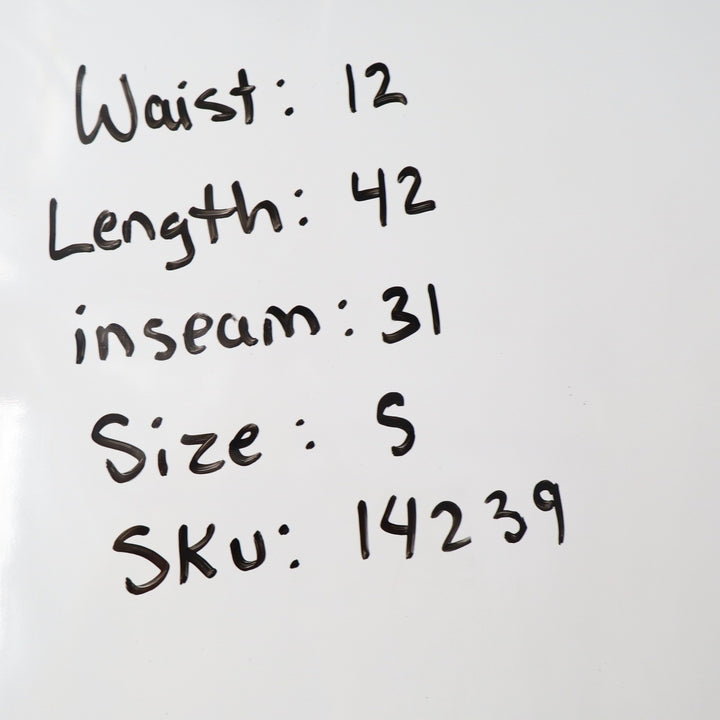 Waist: 12
Length: 42
inseam: 31
Size: S
SKU: 14239